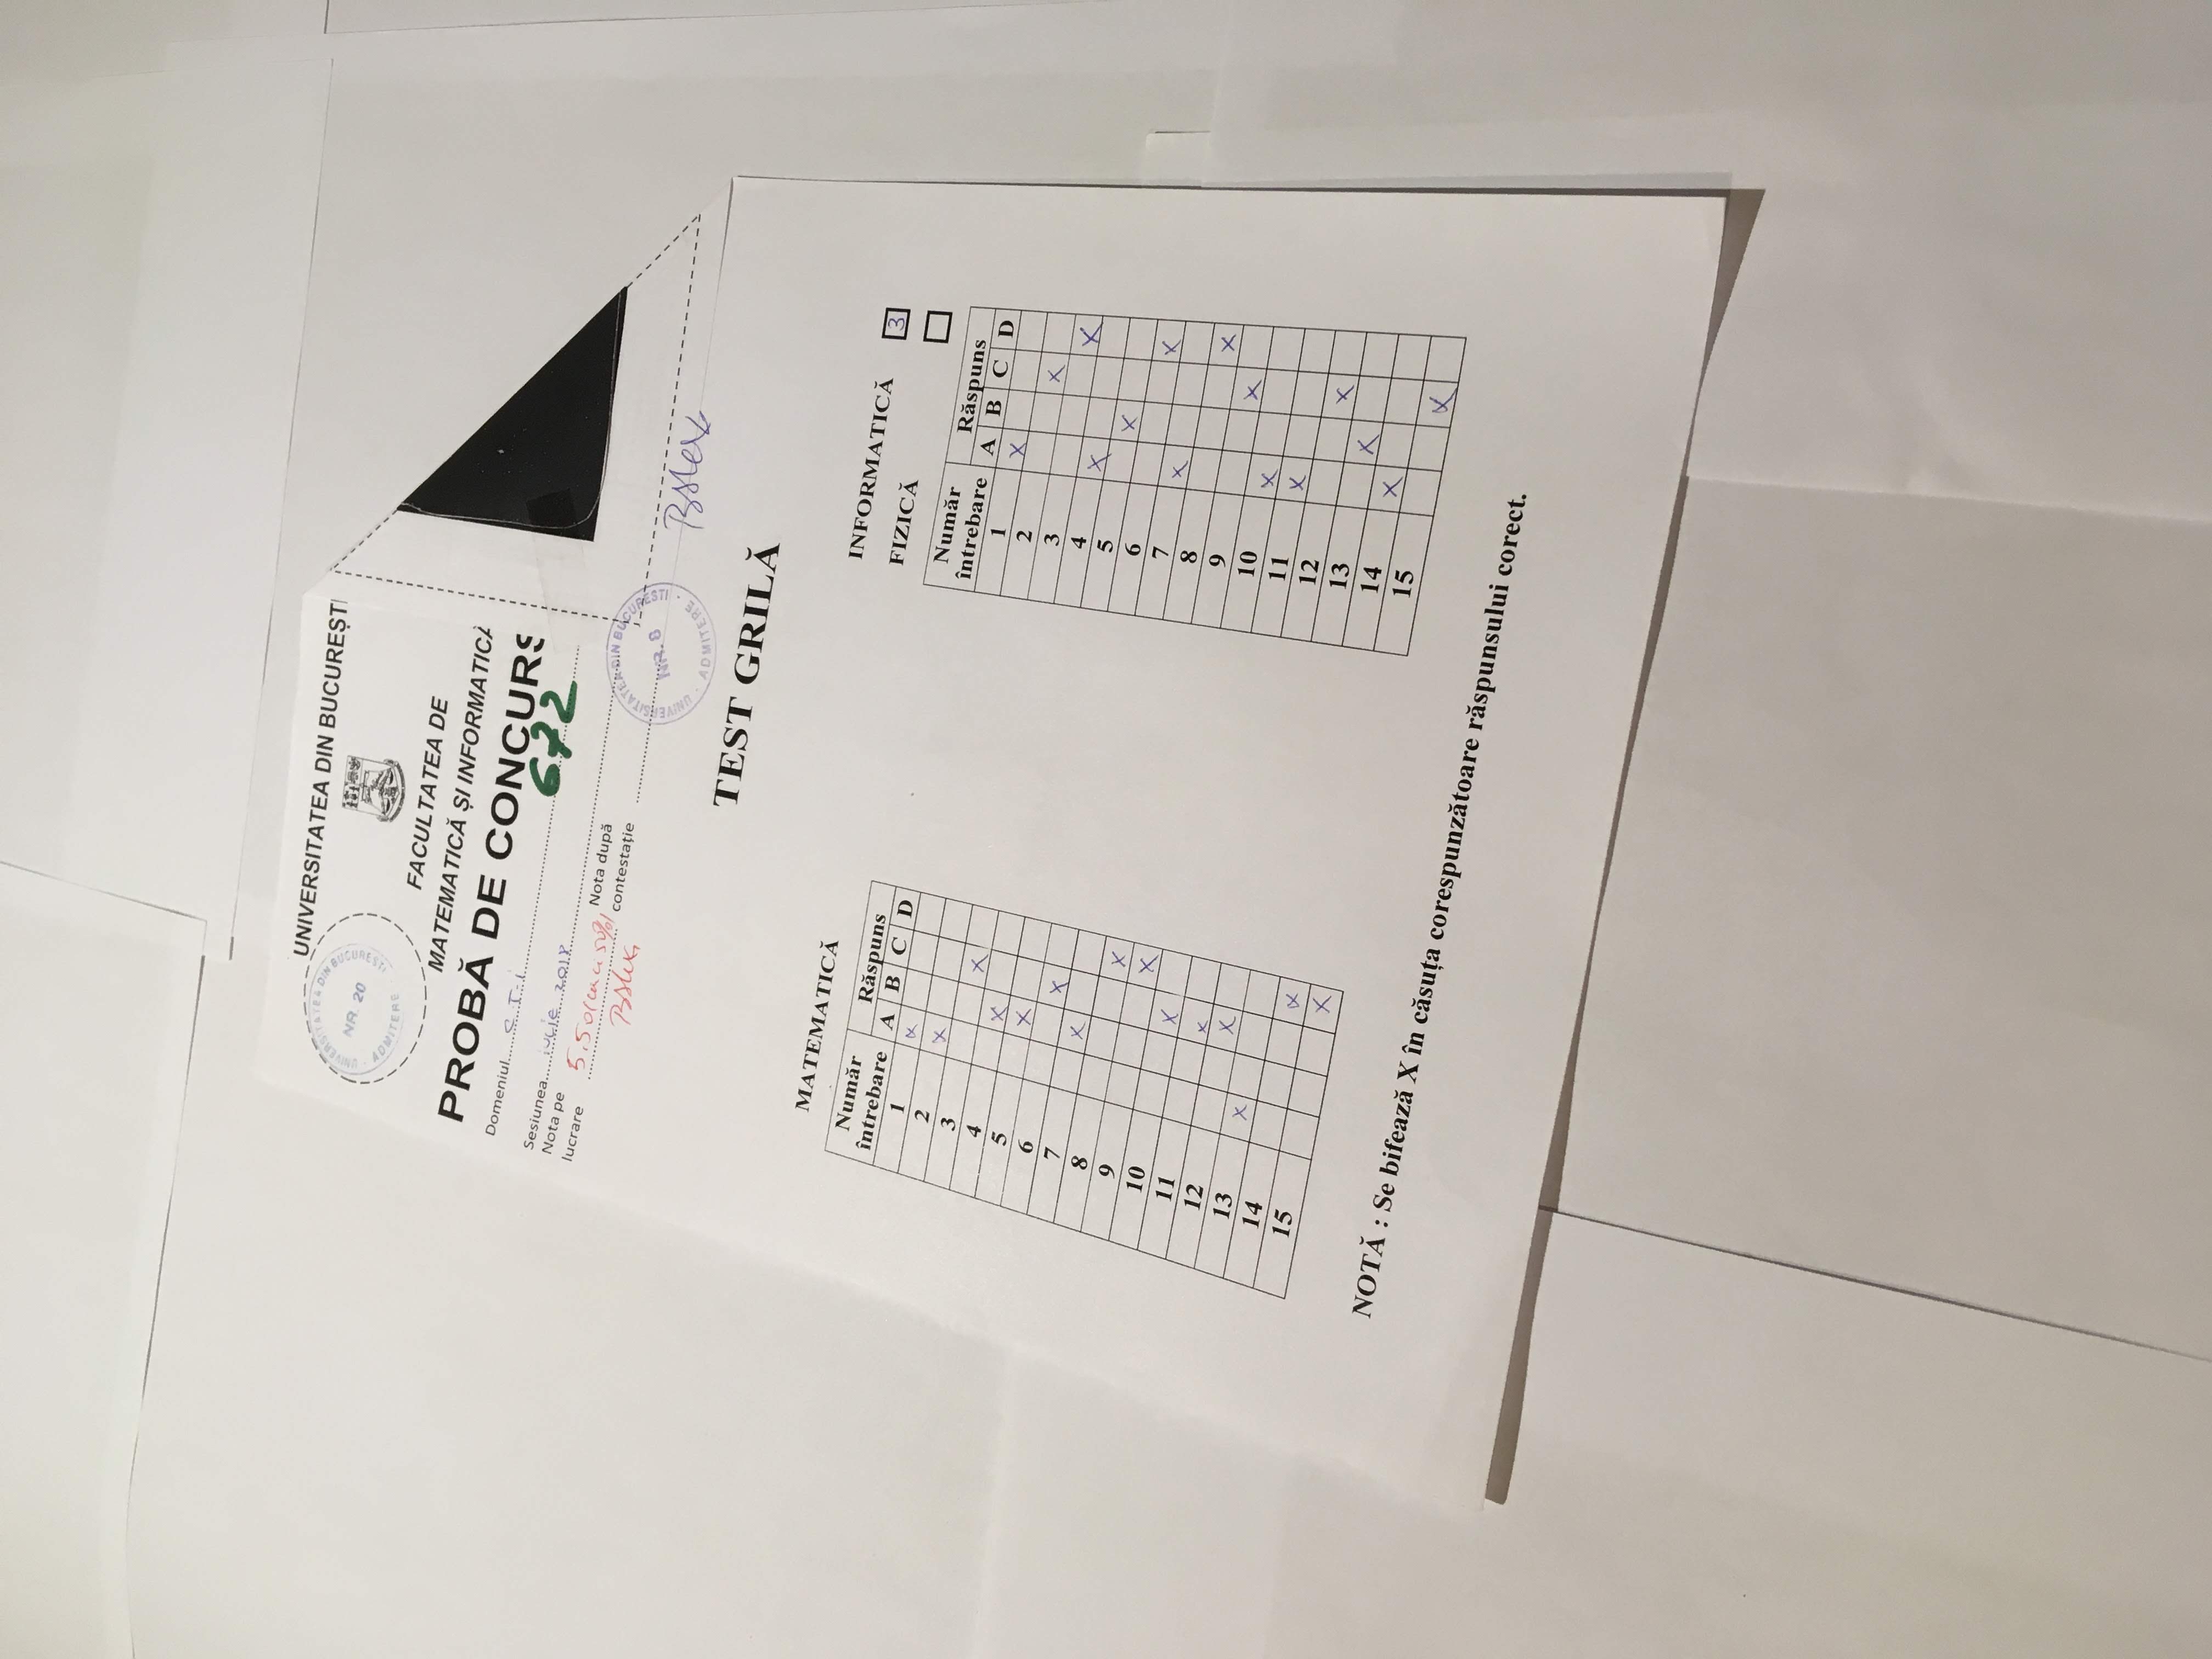 UNIVERSITATEA DIN BUCUREȘTI
UNIVERSITATEA DIN BUCUREȘTI
NR. 20
ADMITERE
FACULTATEA DE
MATEMATICĂ ȘI INFORMATICĂ
PROBĂ DE CONCURS
Domeniul CTI
672
Sesiunea iulie 2018
Nota pe
lucrare 5,50 (cinci 50%)
Nota după
contestație
UNIVERSITATEA DIN BUCURESTI
NR. 8
ADMITERE
TEST GRILĂ
MATEMATICĂ
Număr întrebare Răspuns
A B C D
1 X
2 X
3 X
4 X
5 X
6 X
7 X
8 X
9 X
10 X
11 X
12 X
13 X
14 X
15 X
INFORMATICĂ 3
FIZICĂ
Număr întrebare Răspuns
A B C D
1 X
2 X
3 X
4 X
5 X
6 X
7 X
8 X
9 X
10 X
11 X
12 X
13 X
14 X
15 X
NOTĂ : Se bifează X în căsuța corespunzătoare răspunsului corect.